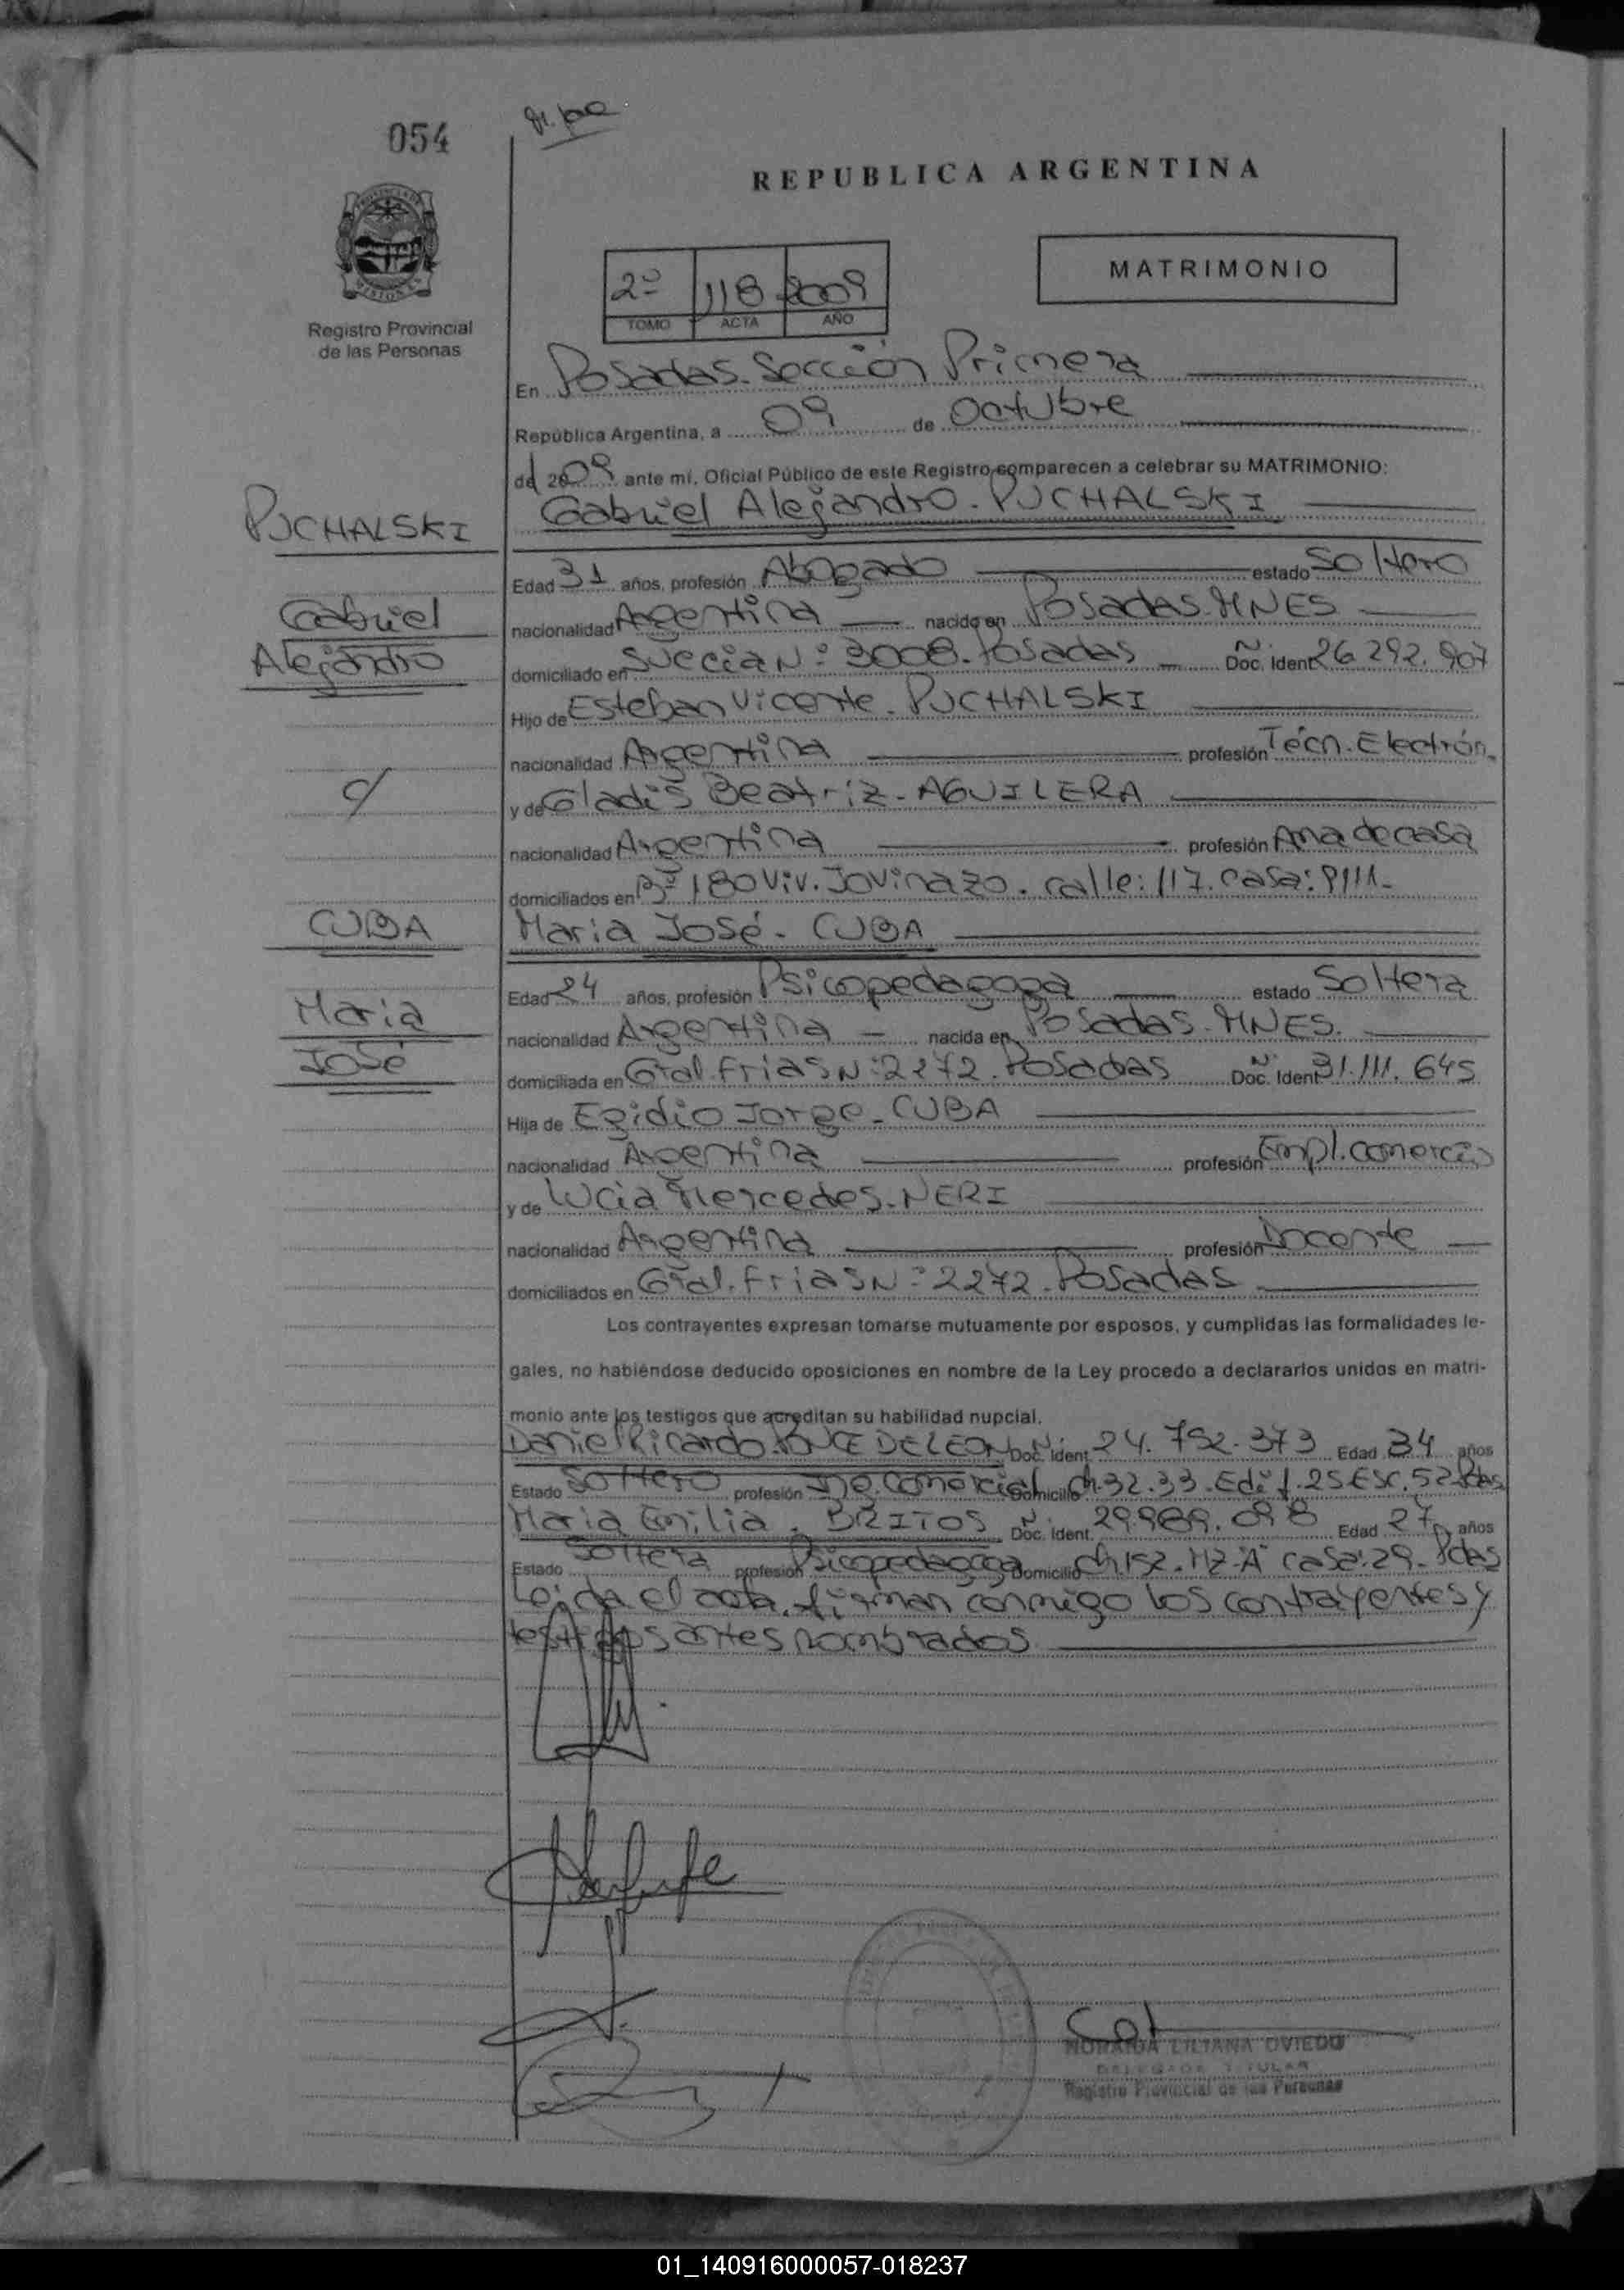 054
REPUBLICA ARGENTINA
MATRIMONIO
2º 118 2009
TOMO ACTA AÑO
Registro Provincial
de las Personas
En Posadas. Sección Primera
República Argentina, a 09 de Octubre
del 2009 ante mí, Oficial Público de este Registro comparecen a celebrar su MATRIMONIO:
PUCHALSKI
Gabriel Alejandro. PUCHALSKI
Edad 31 años, profesión Abogado estado Soltero
Gabriel
nacionalidad Argentina nacido en Posadas. MNES
Alejandro
domiciliado en Suecia Nº 3008. Posadas Doc. Ident Nº 26.292.907
Hijo de Esteban Vicente. PUCHALSKI
nacionalidad Argentina profesión Técn. Electrón.
c/
y de Gladis Beatriz. AGUILERA
nacionalidad Argentina profesión Ama de casa
domiciliados en Bº 180 Viv. Jovinazo. calle: 117. casa: 9111.
CUBA
Maria José. CUBA
Edad 24 años, profesión Psicopedagoga estado Soltera
Maria
nacionalidad Argentina nacida en Posadas. MNES.
José
domiciliada en Gral. Frias Nº 2272. Posadas Doc. Ident Nº 31.111.645
Hija de Egidio Jorge. CUBA
nacionalidad Argentina profesión Empl. comercio
y de Lucia Mercedes. NERI
nacionalidad Argentina profesión Docente
domiciliados en Gral. Frias Nº 2272. Posadas
Los contrayentes expresan tomarse mutuamente por esposos, y cumplidas las formalidades le-
gales, no habiéndose deducido oposiciones en nombre de la Ley procedo a declararlos unidos en matri-
monio ante los testigos que acreditan su habilidad nupcial.
Daniel Ricardo. PONCE DE LEON Doc. Ident. Nº 24.752.373 Edad 34 años
Estado Soltero profesión Ing. Comercial Domicilio Ch. 32.33. Edif. 25 Esc. 52 Pdas
Maria Emilia. BRITOS Doc. Ident. Nº 29.989.098 Edad 27 años
Estado Soltera profesión Psicopedagoga Domicilio Ch. 152. MZ. "A" casa: 29. Pdas
Leida el acta, firman conmigo los contrayentes y
testigos antes nombrados
NORAIDA LILIANA OVIEDO
DELEGADA TITULAR
Registro Provincial de las Personas
01_140916000057-018237